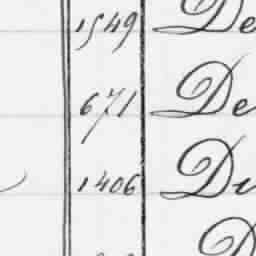 1549 De
671 De
1406 Du
D